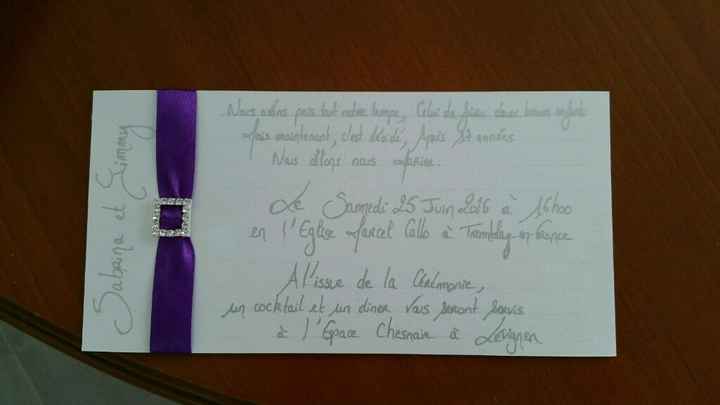 Sabrina et Jimmy
Nous avons pris tout notre temps, Celui de faire deux beaux enfants
Mais maintenant, c'est décidé, Après 17 années
Nous allons nous Marier.
Le Samedi 25 Juin 2016 à 16h00
en l'Eglise Marcel Callo à Tremblay-en-France
A l'issue de la Cérémonie,
un cocktail et un diner vous seront servis
à l'Espace Chesnaie à Lévignen